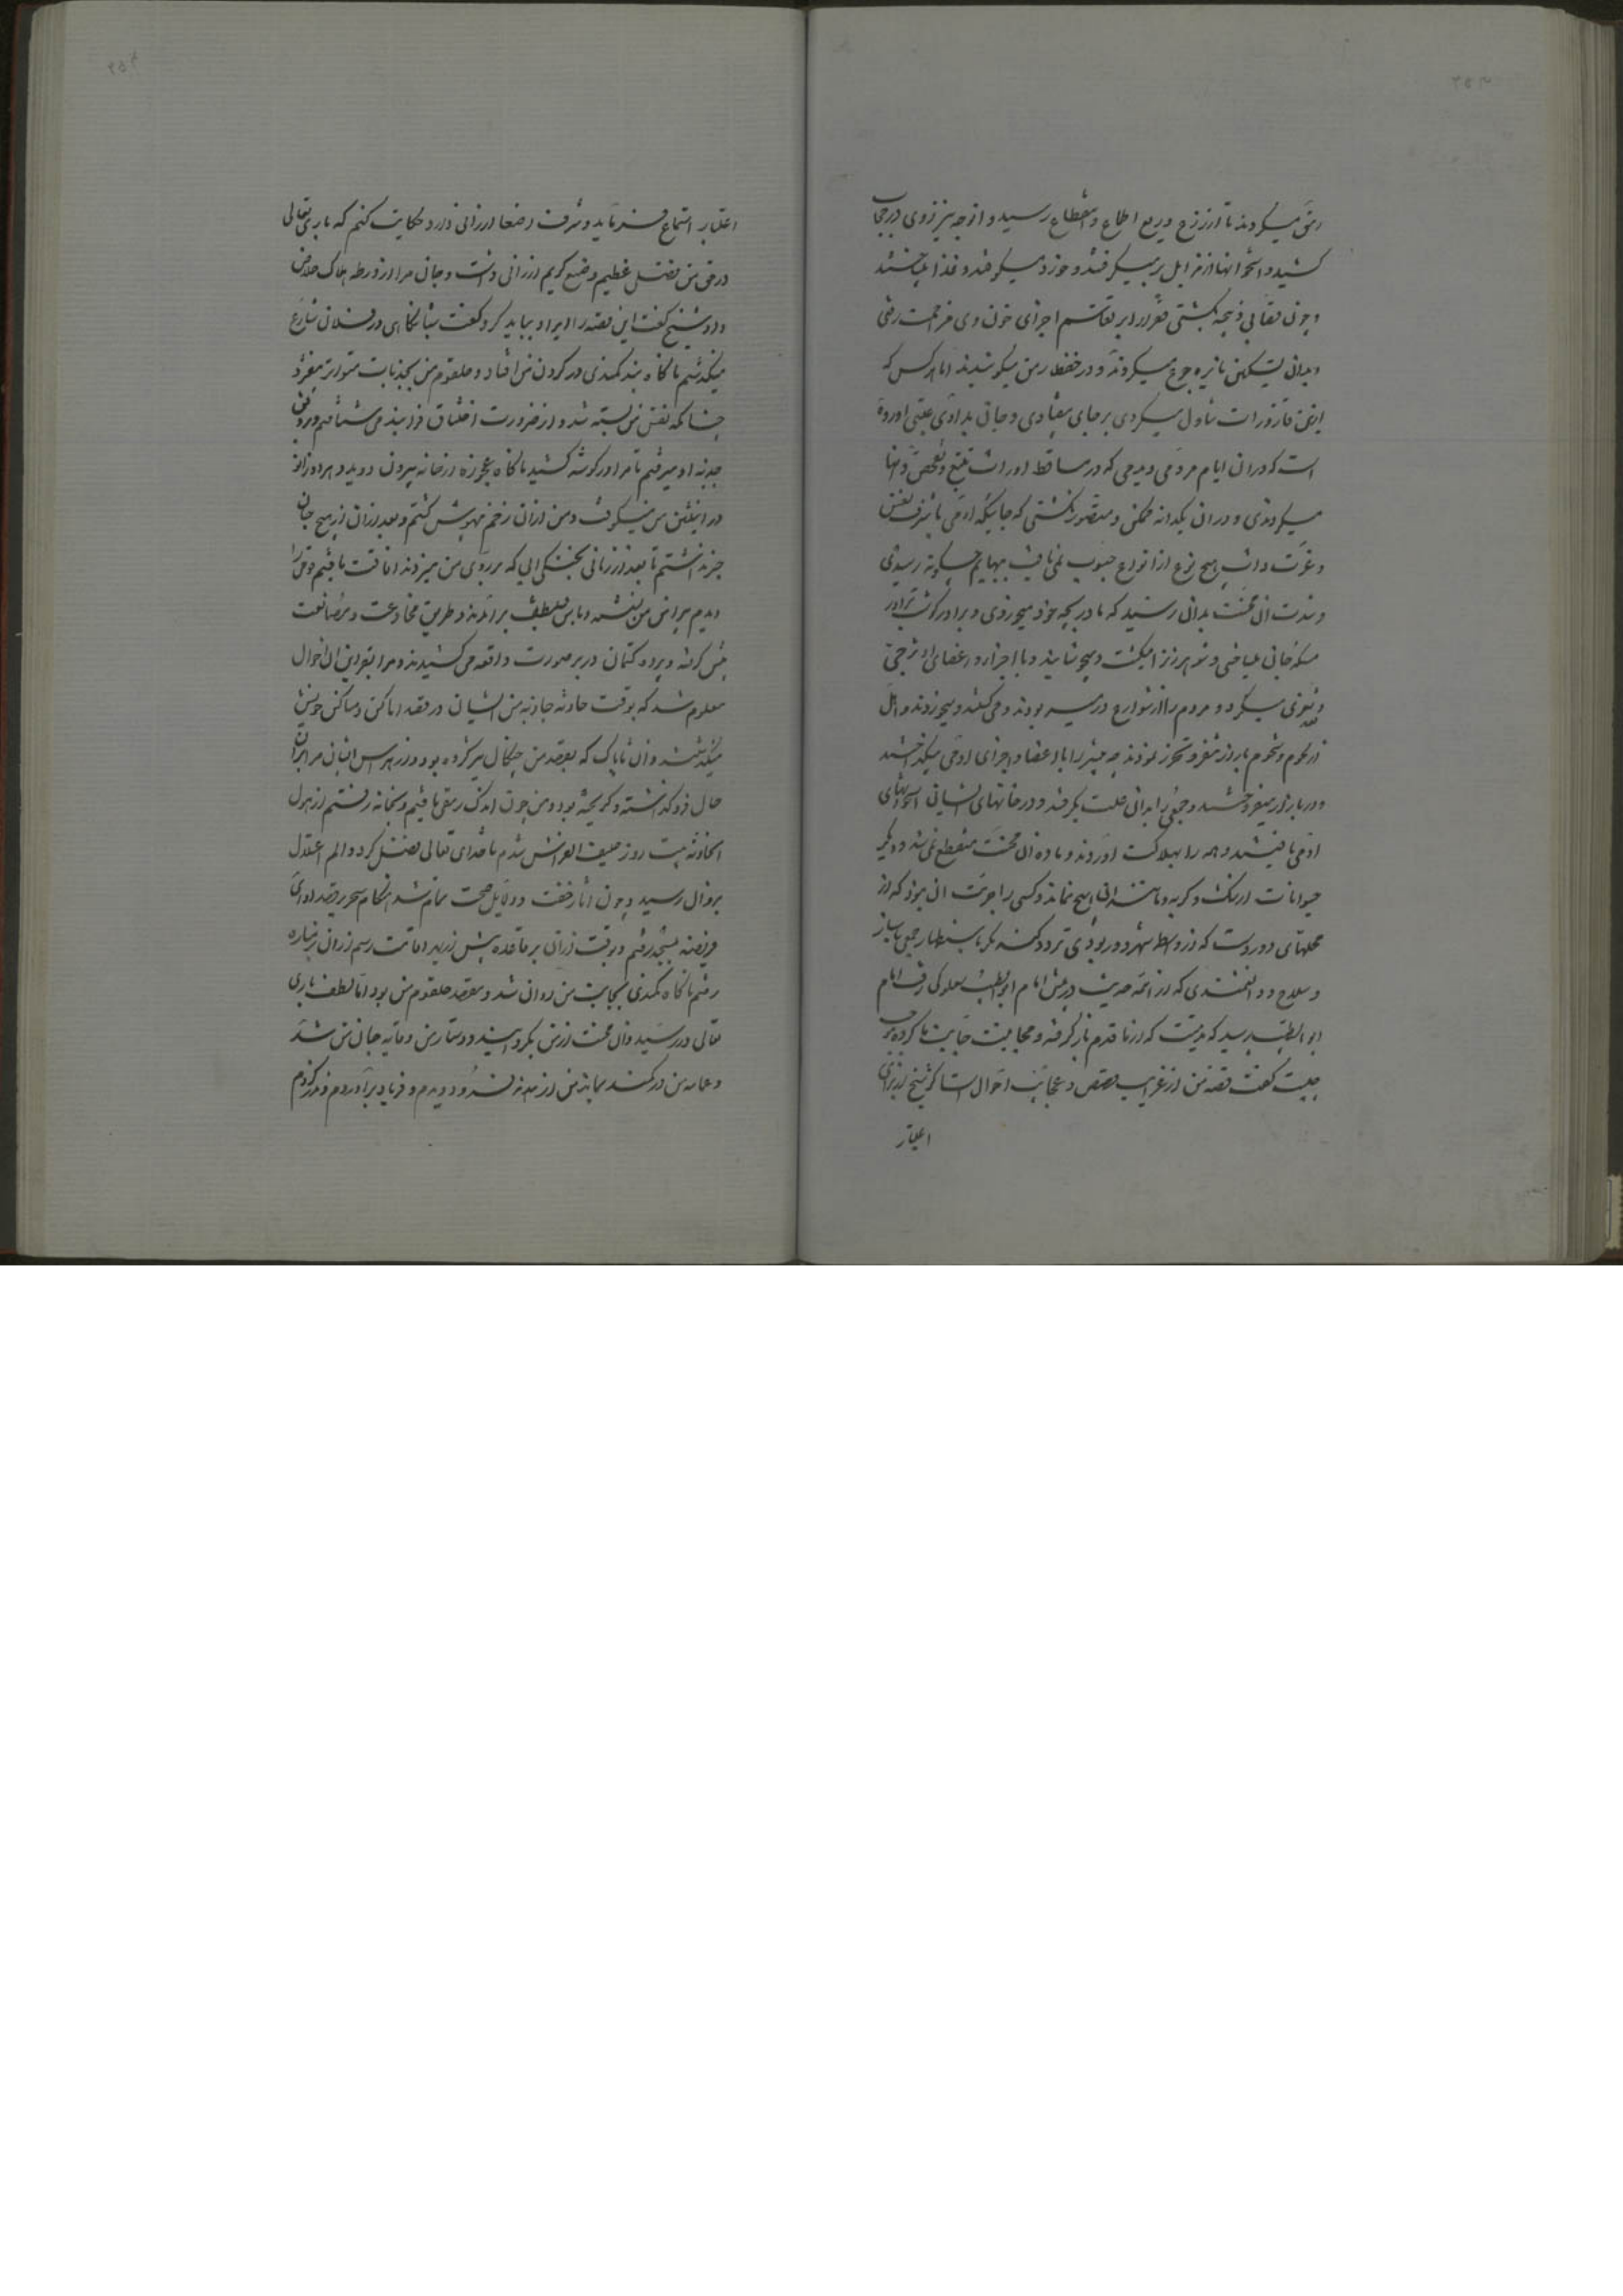 رمق میکردند تا از زرع و ریع اطماع و انقطاع رسید و از جه نیز روی در حجاب
کشید و استخوانها از مزابل بر میکرفتند و خورد میکوفتند و غذا میساختند
و چون قصابی ذبیحه بکشتی فقرا بر تقاسم اجزای خون وی مزاحمت رفتی
و بدان تسکین نایره جوع میکردند و در حفظ رمق میکوشیدند اما هر کس که
ازین قاذورات تناول میکردی بر جای بیفتادی و جان بدادی عتبی اورده
است که دران ایام مردمی دیدمی که در مساقط اوراث تتبع و تفحص دانها
میکردندی و دران یکدانه ممکن و متصور نکشتی که جائیکه ادمی با شرف نفس
و عزت ذات هیچ نوع از انواع حبوب نمی یافت ببهایم چگونه رسیدی
و شدت ان محنت بدان رسید که مادر بچه خود میخوردی و برادر کوشت برادر
میکرد و مردم را از شوارع در میربودند و می کشتند و میخوردند و اهل
از لحوم و شحوم بازار تنفر و تحرز نمودند چه بیشتر را با اعضا و اجزای ادمی میکداختند
و در بازار میفروختند و جمعی را بدان علت بکرفتند و در خانهای ایشان استخوانهای
ادمی یافتند و همه را بهلاکت اوردند و ماده ان محنت منقطع نمی شد و دیکر
حیوانات از سک و کربه و مانند ان هیچ نماند و کسی را جرءت ان نبود که از
محلتهای دور دست که از واسطه شهر دور بودی تردد کند مکر باستظهار جمعی با ساز
و سلاح و دانشمندی که از ائمه حدیث در پیش امام ابو الطیب سعلوکی رفت امام
ابو الطیب پرسید که مدتیست که از ما قدم باز کرفته و مجانبت جانب ما کرده موجب
چیست کفت قصه من از غرایب قصص و عجایب احوال است اکر شیخ از برای
اعتبار
اعتبار استماع فرماید و شرف اصغا ارزانی دارد حکایت کنم که باری تعالی
در حق من فضل عظیم و صنع کریم ارزانی داشت و جان مرا از ورطه هلاک خلاص
داد شیخ کفت این قصه را ایراد بباید کرد کفت شبانکاهی در فلان شارع
میکذشتم ناکاه بند کمندی در کردن من افتاد و حلقوم من بجذبات متواتر بیفشرد
چنانکه نفس من بسته شد و از ضرورت اختناق فرا بند می شتافتم و بر وفق
جذبه او میرفتم تا مرا در کوشه کشید ناکاه عجوزه از خانه بیرون دوید و بهر دو زانو
در انثیین من میکوفت و من ازان زخم بیهوش کشتم و بعد ازان از هیچ جان
خبر نداشتم تا بعد از زمانی بخنکی ابی که بر روی من میزدند افاقت یافتم قومی را
دیدم بر بالین من نشسته و با من بتلطف برامدند و طریق مخادعت و مصانعت
پیش کرفته و پرده کتمان در بر صورت واقعه می کشیدند و مرا بقراین ان احوال
معلوم شد که بوقت حادثه جاذبه من ایشان در قصد اماکن و مساکن خویش
میکذشتند و ان ناپاک که بقصد من چنکال تیز کرده بود از هراس ایشان مرا بران
حال فرو کذاشته و کریخته بود و من چون اندک رمقی یافتم و بخانه رفتم از هول
الحادثه بیست روز ضعیف الفراش شدم تا خدای تعالی تفضل کرد و الم اعتلال
بزوال رسید و چون اثار خفت و دلایل صحت تمام شد هنکام سحر بقصد ادای
فریضه بمسجد رفتم و بوقت اذان بر قاعده پیش از بهر اقامت رسم اذان بر مناره
رفتم ناکاه کمندی بجانب من روان شد و بقصد حلقوم من بود اما لطف باری
تعالی در رسید و ان محنت از من بکردانید و دستار من وقایه جان من شد
و عمامه من در کمند بماند من از مئذنه فرود دویدم و فریاد براوردم و نذر کردم